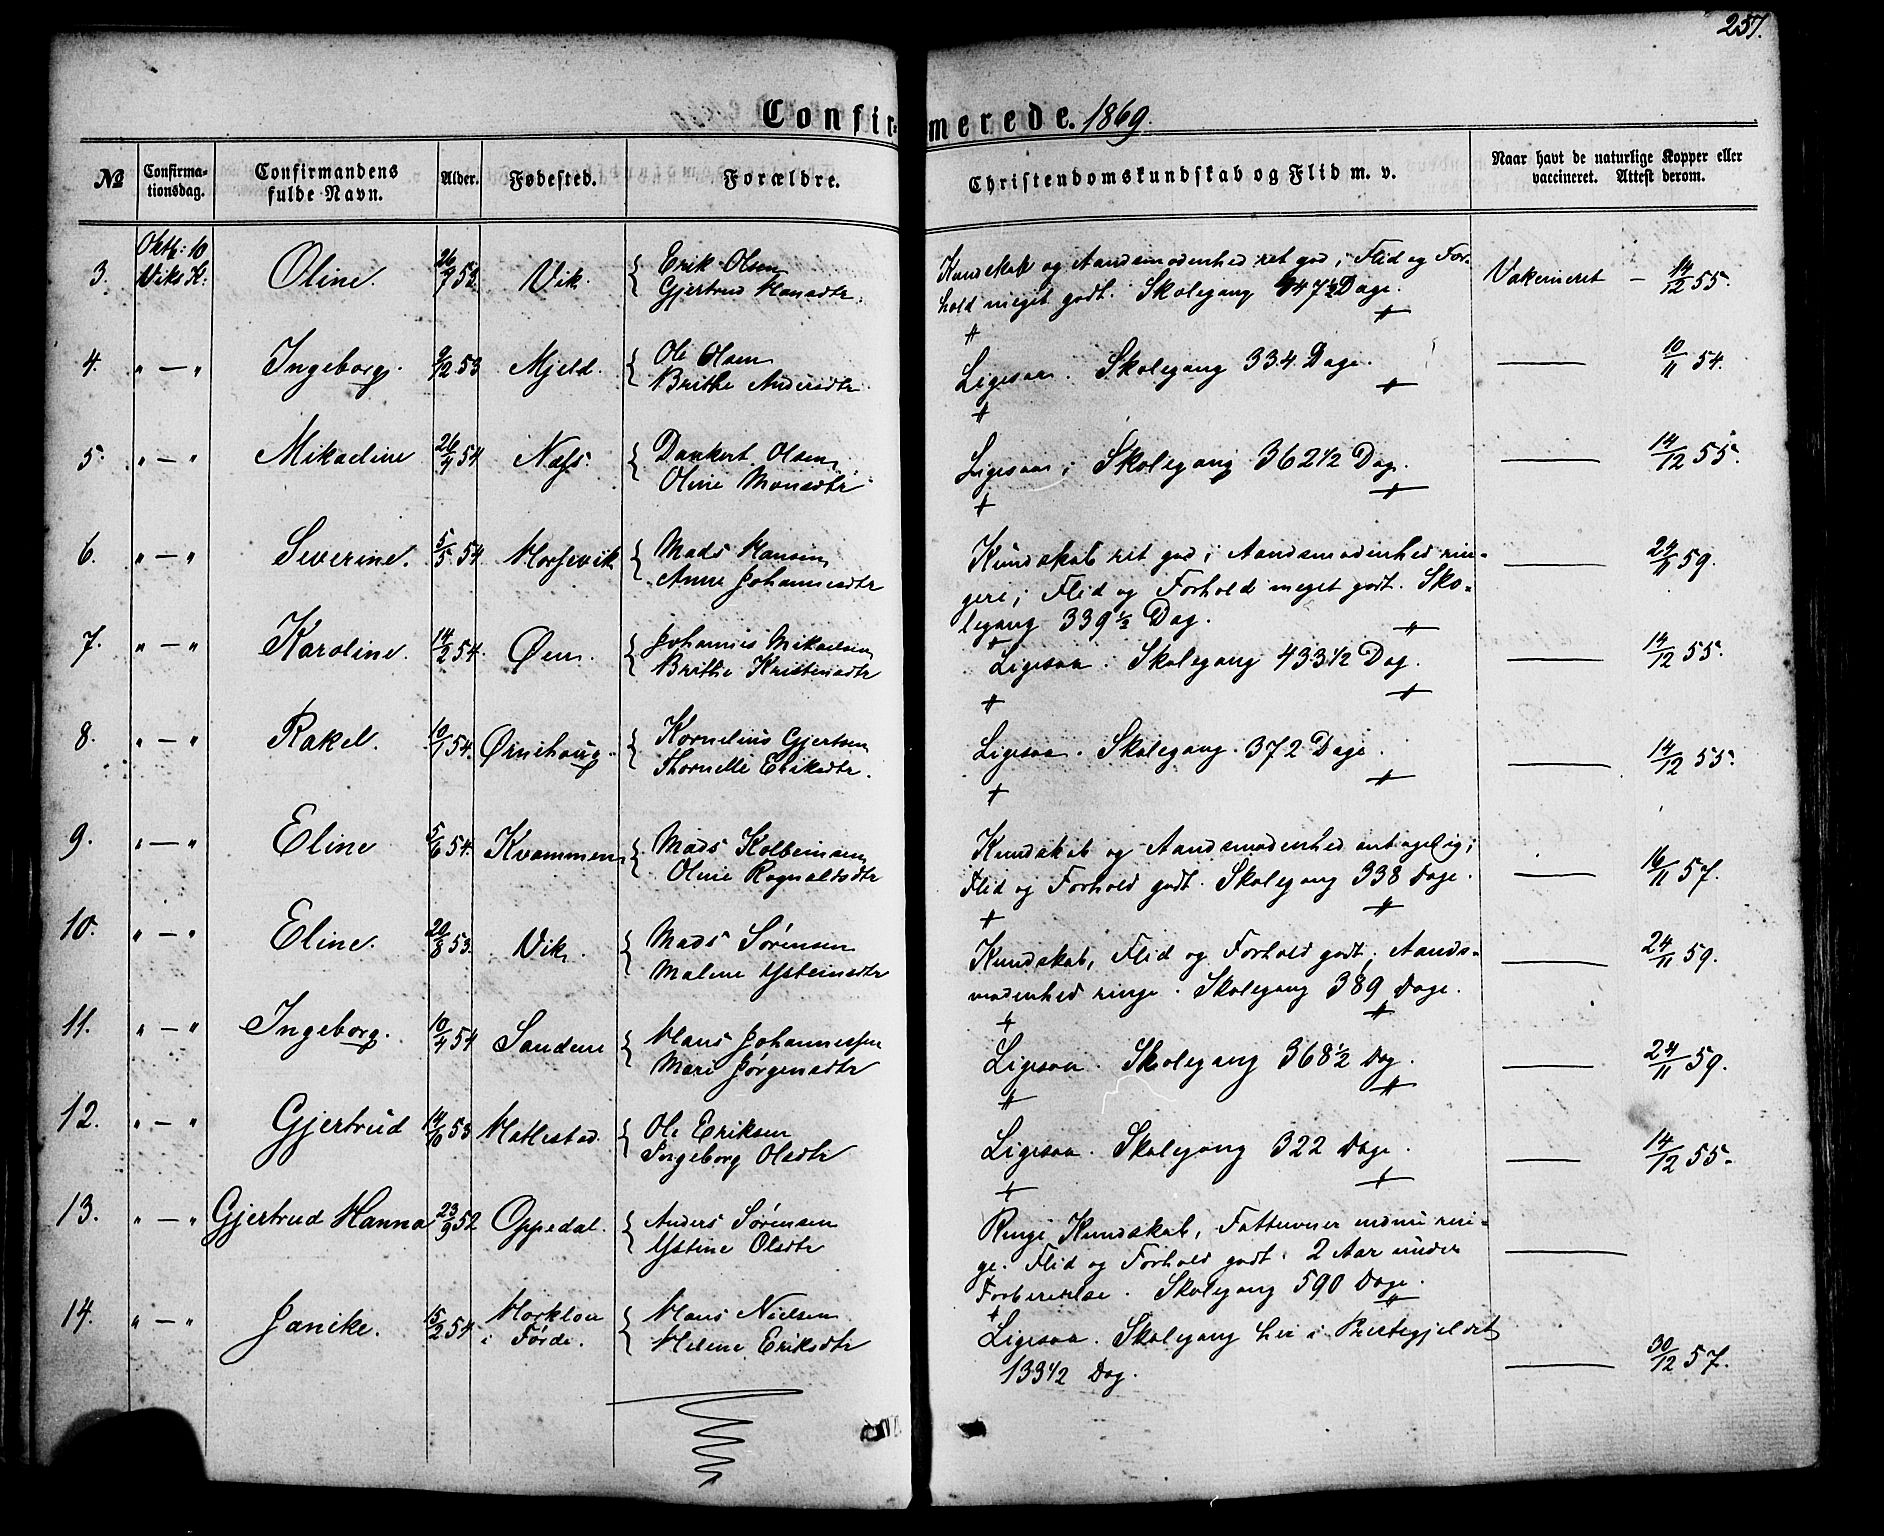 257.
Confirmerede. 1869.
№ Confirmationsdag. Confirmandens fulde Navn. Alder. Fødested. Forældre. Christendomskundskab og Flid m. v. Naar havt de naturlige Kopper eller vaccineret. Attest derom.
3. Oktb: 10 Viks K: Oline. 26/7 53 Vik. { Erik Olsen
Gjertrud Hansdtr.
Kundskab og Aandsmodenhed ret god; Flid og For-
hold meget godt. Skolegang 447½ Dage.
Vakcineret — 14/12 55.
4. " — " Ingeborg. 9/12 53 Mjeld. { Ole Olsen
Brithe Andersdtr
Ligesaa. Skolegang 334 Dage. —— 10/11 54.
5. " — " Mikaeline 26/4 54 Næss. { Dankert Olsen
Oline Monsdtr
Ligesaa; Skolegang 362 1/2 Dag. —— 14/12 55.
6. " — " Severine. 5/5 54. Horsevik { Mads Hansen
Anne Johannesdtr
Kundskab ret god; Aandsmodenhed rin-
gere; Flid og Forhold meget godt. Sko-
legang 339 ½ Dag.
—— 24/11 59.
7. " — " Karoline. 14/2 54. Øen. { Johannes Mikaelsen
Brithe Kristensdtr
Ligesaa. Skolegang 433 1/2 Dag. —— 14/12 55.
8. " — " Rakel. 10/1 54. Ørnehaug. { Kornelius Gjertsen
Thornelle Eriksdtr.
Ligesaa. Skolegang 372 Dage. —— 14/12 55.
9. " — " Eline 5/6 54. Kvammen { Mads Kolbeinsen
Oline Ragnaldsdtr
Kundskab og Aandsmodenhed antagelig;
Flid og Forhold godt. Skolegang 338 Dage.
—— 16/11 57.
10. " — " Eline. 20/8 53. Vik. { Mads Sørensen
Malene Ysteinsdtr
Kundskab, Flid og Forhold godt; Aands-
modenhed ringe. Skolegang 389 Dage.
—— 24/11 59.
11. " — " Ingeborg. 10/4 54 Sandene { Hans Johannessen
Mari Jørgensdtr
Ligesaa. Skolegang 368½ Dag. —— 24/11 59.
12. " — " Gjertrud 14/10 53 Hatlestad. { Ole Eriksen
Ingeborg Olsdtr
Ligesaa. Skolegang 322 Dage. —— 14/12 55.
13. " — " Gjertrud Hanna 23/9 52 Oppedal. { Anders Sørensen
Ystine Olsdtr
Ringe Kundskab, Fatteevner endnu rin-
ge. Flid og Forhold godt. 2 Aar under
Forberedelse. Skolegang 590 Dage.
——
14. " — " Janike. 15/2 54 i Førde. { Hans Nielsen
Helene Eriksdtr
Ligesaa. Skolegang her i Præstegjeldet
133 1/2 Dag.
—— 30/12 57.